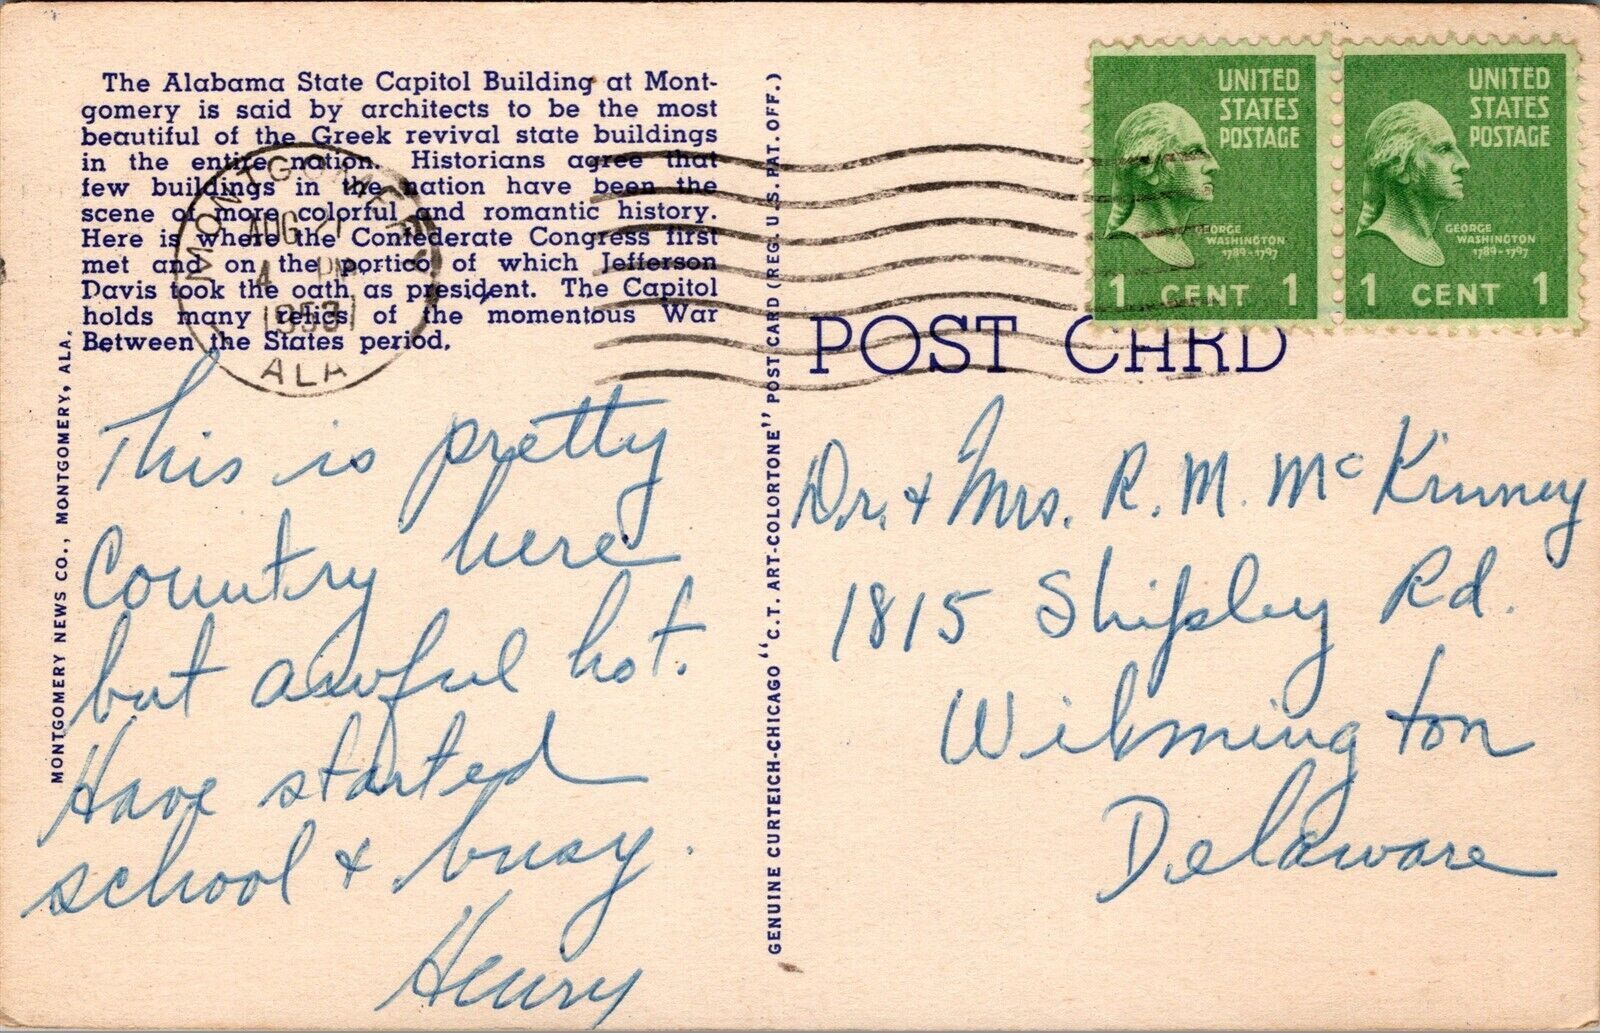 The Alabama State Capitol Building at Mont-
gomery is said by architects to be the most
beautiful of the Greek revival state buildings
in the entire nation. Historians agree that
few buildings in the nation have been the
scene of more colorful and romantic history.
Here is where the Confederate Congress first
met and on the portico of which Jefferson
Davis took the oath as president. The Capitol
holds many relics of the momentous War
Between the States period.
MONTGOMERY
AUG 21
4 PM
1953
ALA
MONTGOMERY NEWS CO., MONTGOMERY, ALA.
This is pretty
Country here
but awful hot.
Have started
school & busy.
Henry
GENUINE CURTEICH-CHICAGO "C.T. ART-COLORTONE" POST CARD (REG. U.S. PAT. OFF.)
UNITED
STATES
POSTAGE
GEORGE
WASHINGTON
1789-1797
1 CENT 1
UNITED
STATES
POSTAGE
GEORGE
WASHINGTON
1789-1797
1 CENT 1
POST CARD
Dr. & Mrs. R. M. McKinney
1815 Shipley Rd.
Wilmington
Delaware